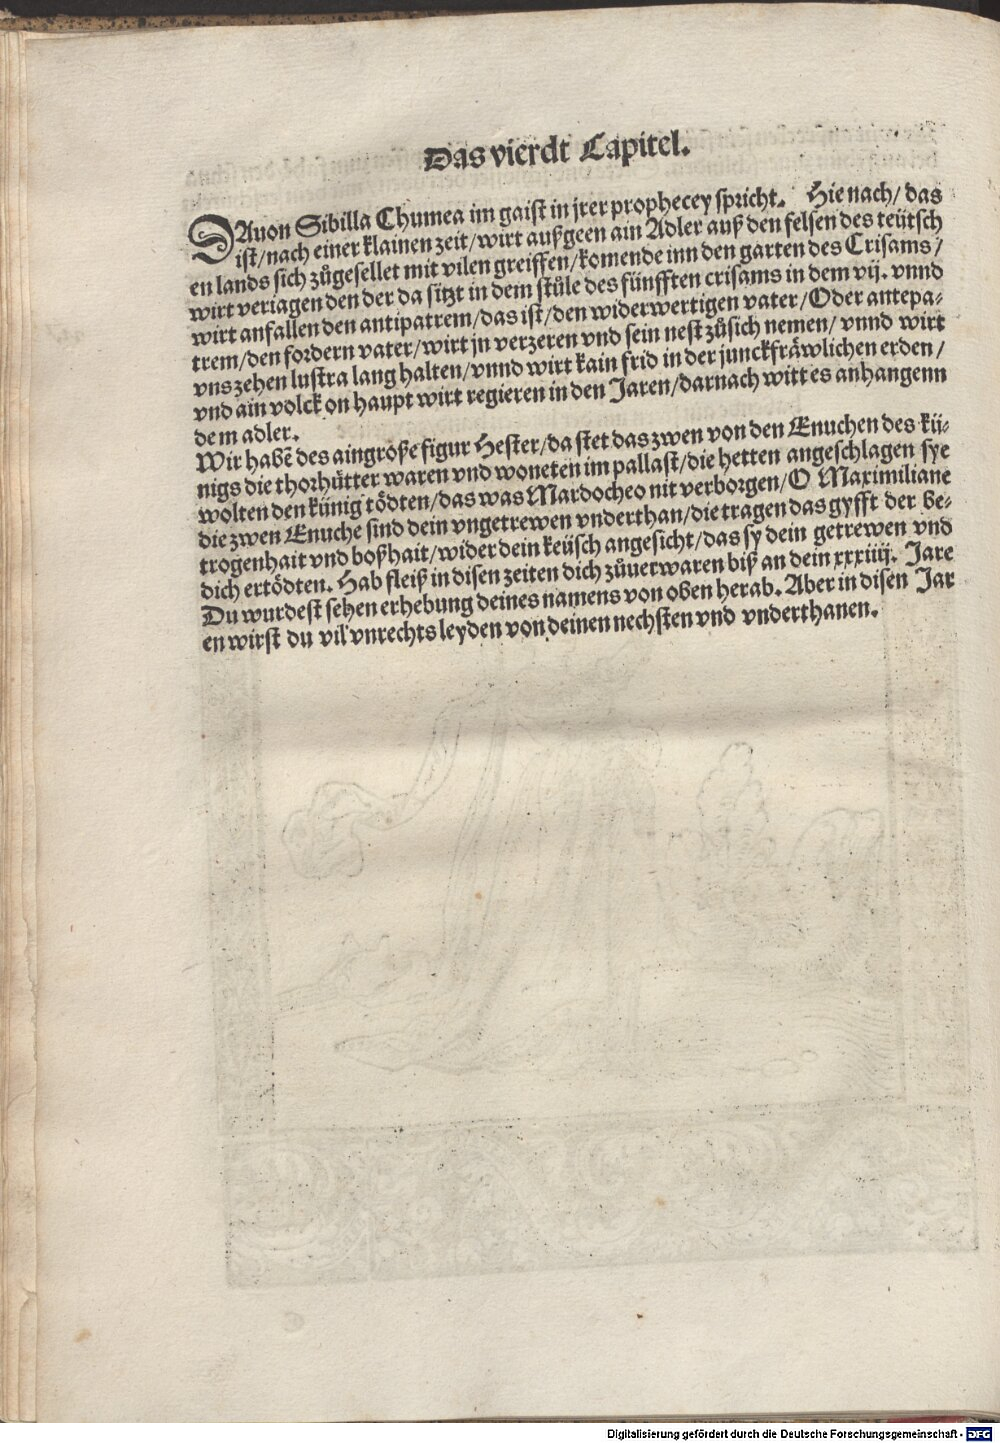 Das vierdt Capitel.
DAuon Sibilla Chumea im gaist in jrer prophecey spricht. Hie nach/ das
ist/nach einer klainen zeit/wirt außgeen ain Adler auß den felsen des teütsch
en lands sich zůgesellet mit vilen greiffen/komende inn den garten des Crisams/
wirt veriagen den der da sitzt in dem stůle des fünfften crisams in dem vij. vnnd
wirt anfallen den antipatrem/das ist/den widerwertigen vater/Oder antepa-
trem/den fordern vater/wirt jn verzeren vnd sein nest zůsich nemen/ vnnd wirt
vns zehen lustra lang halten/vnnd wirt kain frid in der junckfräwlichen erden/
vnd ain volck on haupt wirt regieren in den Jaren/darnach witt es anhangenn
dem adler.
Wir habē des ain große figur Hester/da stet das zwen von den Enuchen des kü-
nigs die thorhütter waren vnd woneten im pallast/die hetten angeschlagen sye
wolten den künig tödten/das was Mardocheo nit verborgen/O Maximiliane
die zwen Enuche sind dein vngetrewen vnderthan/die tragen das gyfft der be-
trogenhait vnd boßhait/wider dein keüsch angesicht/das sy dein getrewen vnd
dich ertödten. Hab fleiß in disen zeiten dich zůuerwaren biß an dein xxxiiij. Jare
Du wurdest sehen erhebung deines namens von oben herab. Aber in disen Jar
en wirst du vil vnrechts leyden von deinen nechsten vnd vnderthanen.
Digitalisierung gefördert durch die Deutsche Forschungsgemeinschaft - DFG